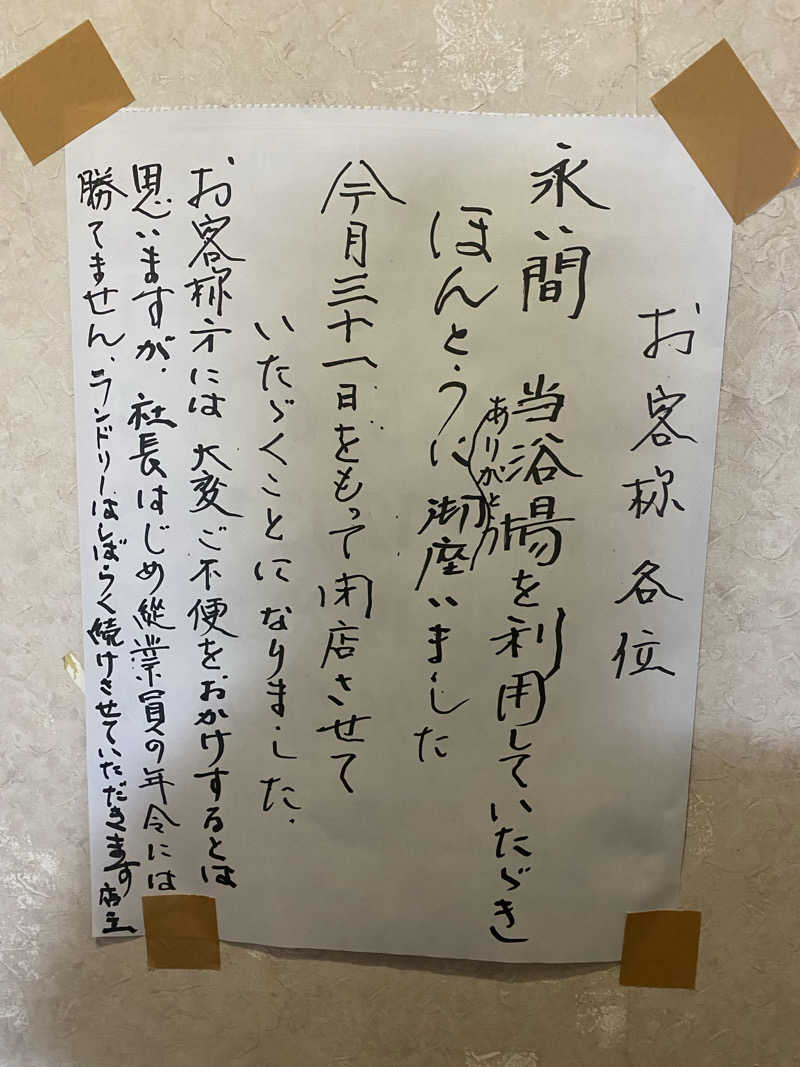 お客様各位
永い間 当浴場を利用していたゞき
ほんとうにありがとう御座いました
今月三十一日をもって閉店させて
いたゞくことになりました。
お客様方には大変ご不便をおかけするとは
思いますが、社長はじめ縦業員の年令には
勝てません、ランドリーはしばらく続けさせていただきます 店主